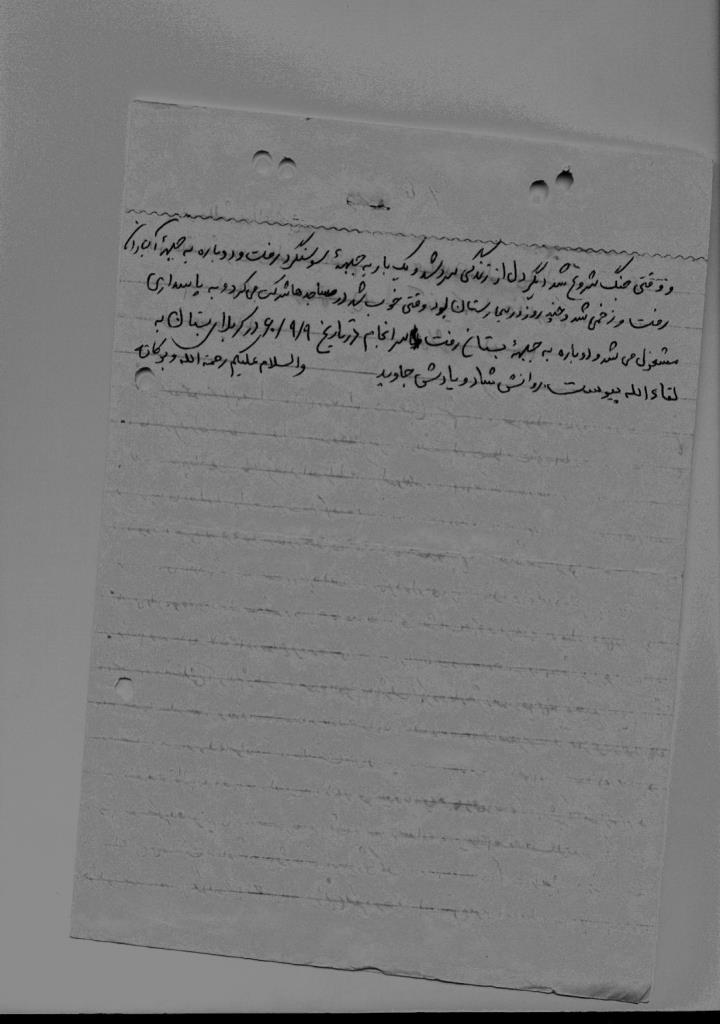 و وقتی جنگ شروع شد دیگر دل از زندگی سرد شد و یک بار به جبههٔ سوسنگرد رفت و دوباره به جبههٔ آبادان
رفت و زخمی شد و چند روز در بیمارستان بود وقتی خوب شد در مساجد ها شرکت می کرد و به پاسداری
مشغول می شد و دوباره به جبههٔ بستان رفت سرانجام در تاریخ ۶۰/۹/۹ در کربلای بستان به
لقاءالله پیوست. روانش شاد و یادش جاوید والسلام علیکم رحمة الله و برکاته